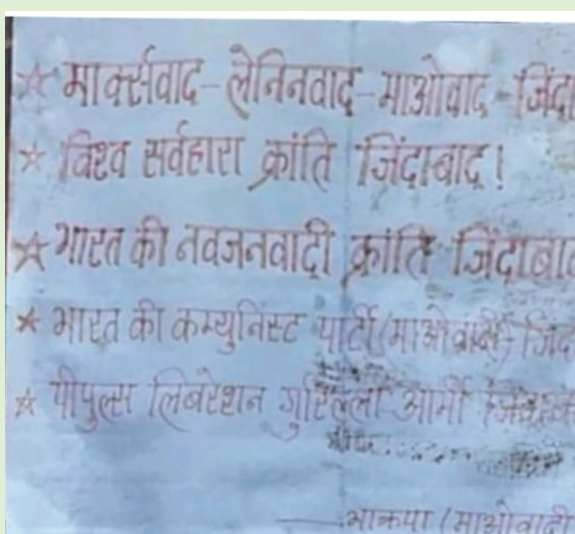 ☆ मार्क्सवाद-लेनिनवाद-माओवाद-जिंदा
☆ विश्व सर्वहारा क्रांति जिंदाबाद!
☆ भारत की नवजनवादी क्रांति जिंदाबाद
☆ भारत की कम्युनिस्ट पार्टी (माओवादी) जिंद
☆ पीपुल्स लिबरेशन गुरिल्ला आर्मी
भाकपा (माओवादी